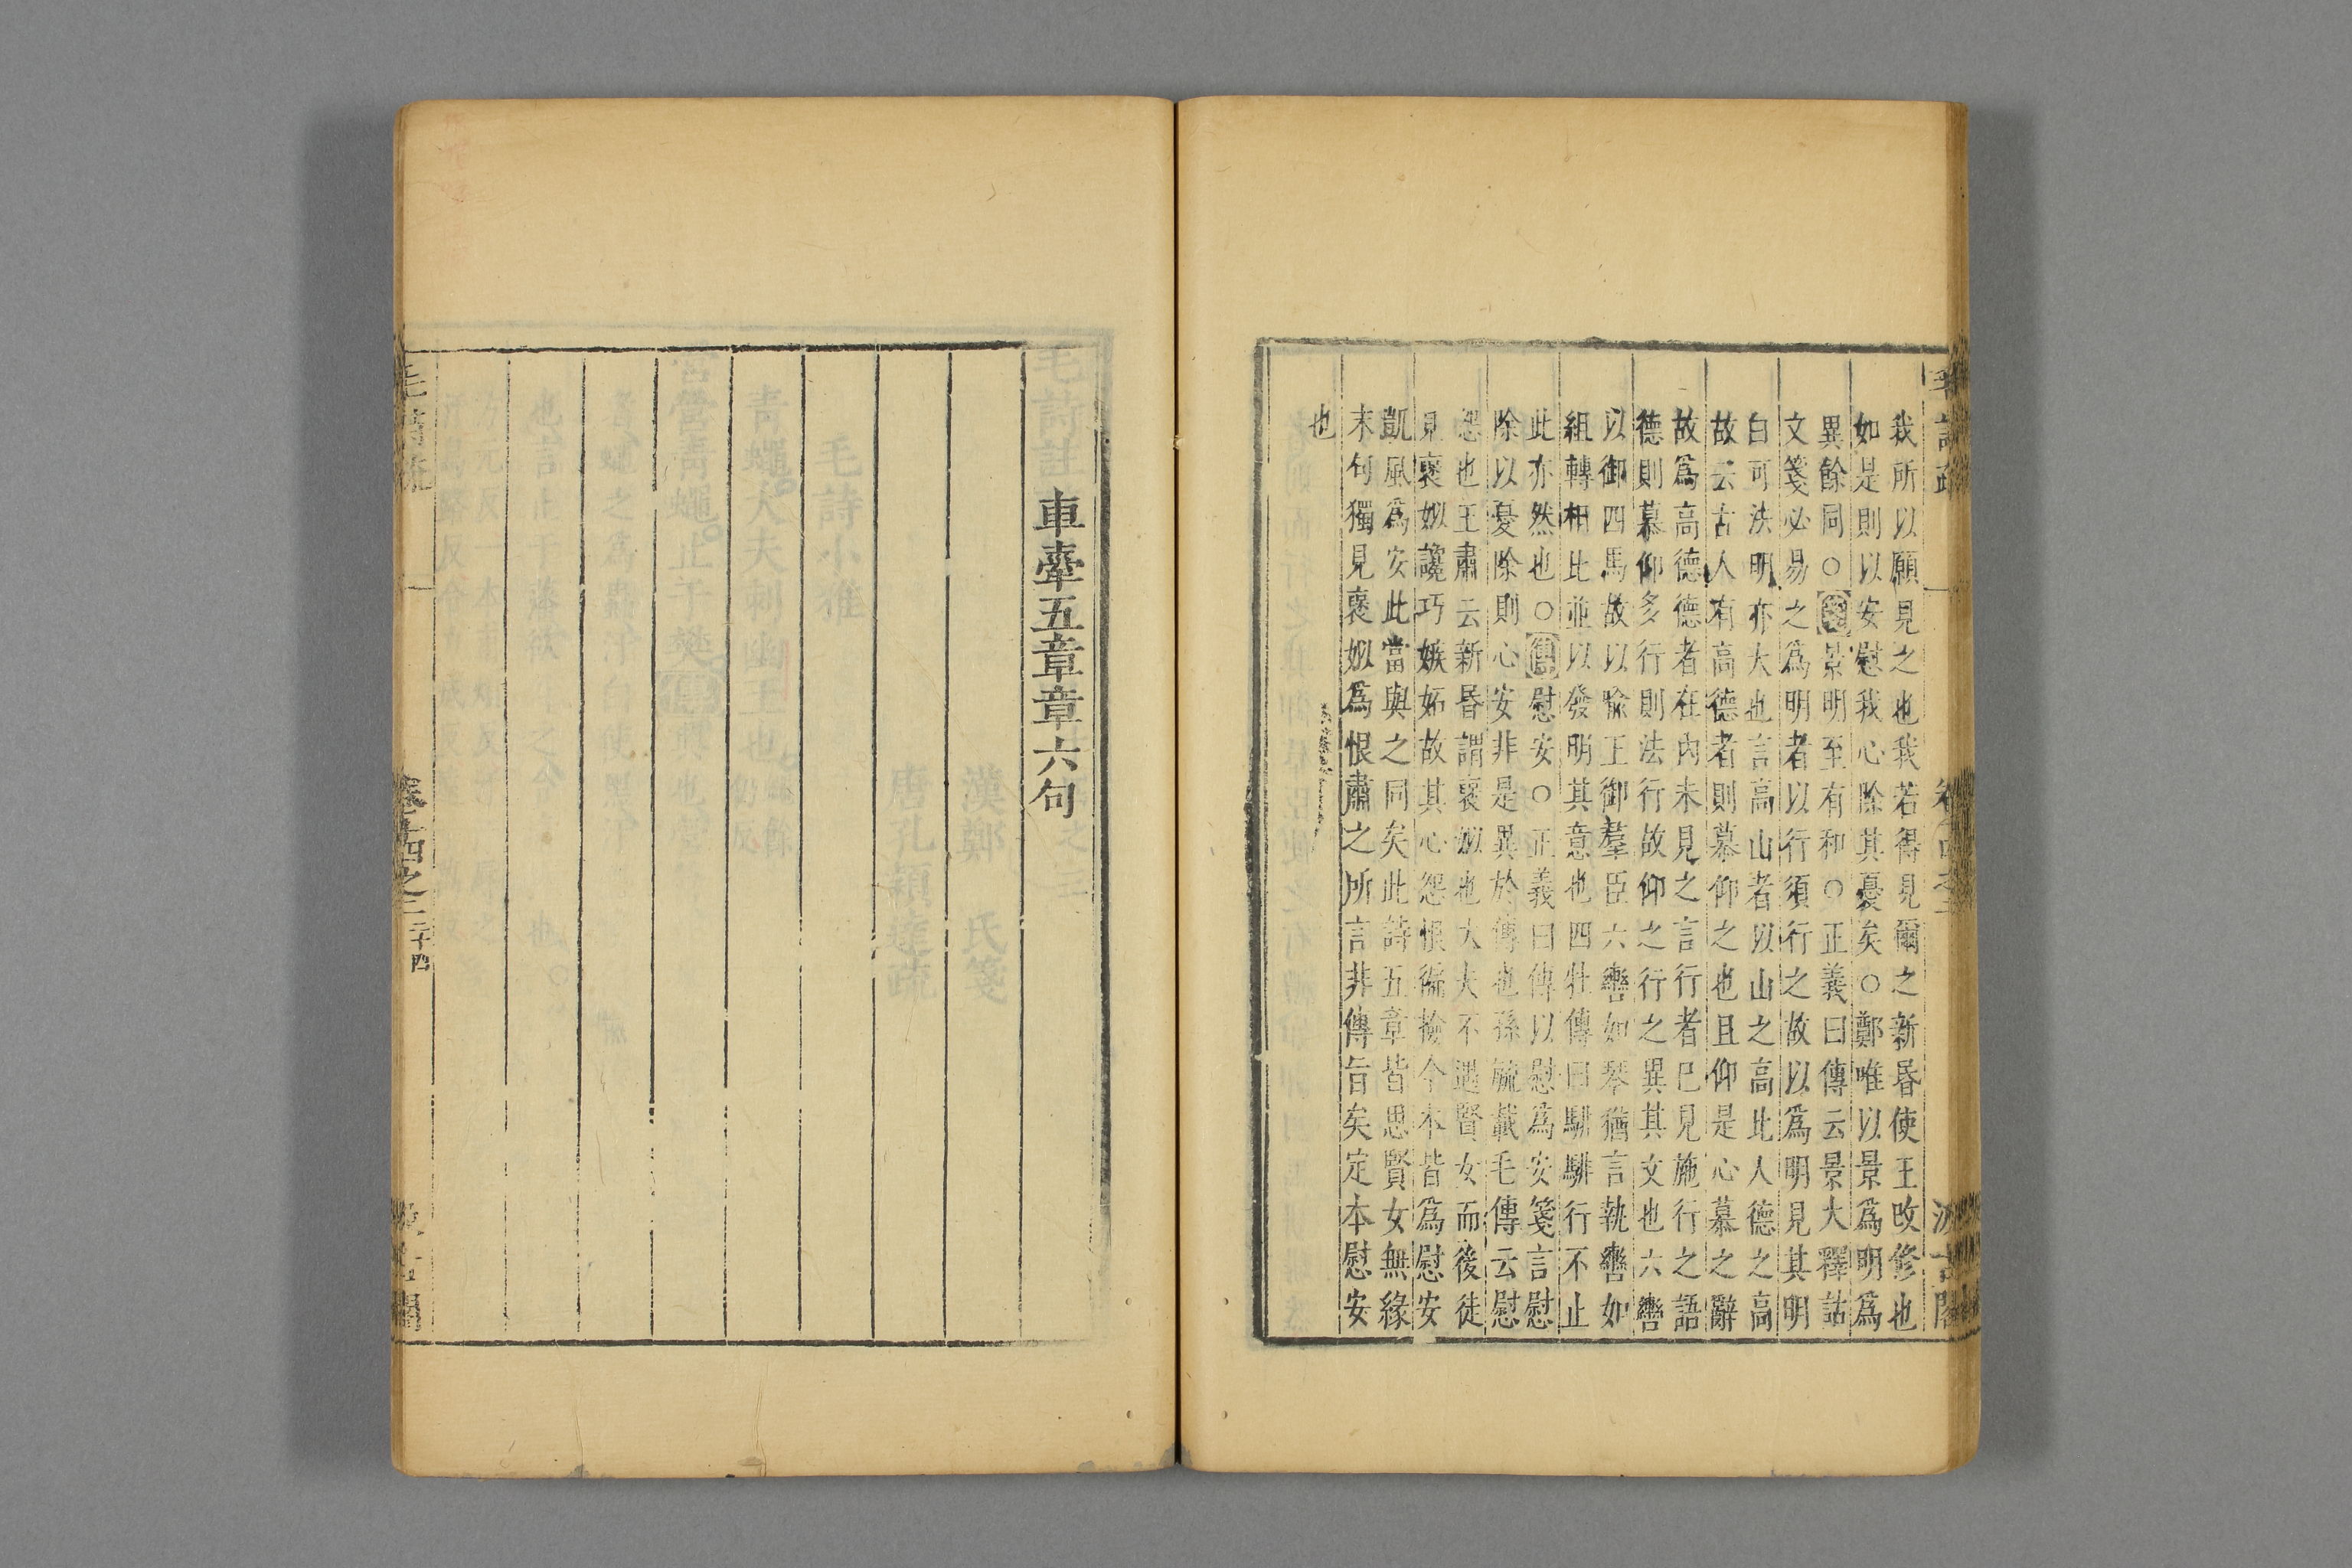 我所以願見之也我若得見爾之新昏使王改修也
如是則以安慰我心除其憂矣○鄭唯以景爲明爲
異餘同○箋景明明至有和○正義曰傳云景大釋詁
文箋必易之爲明者以行須行之故以爲明見其明
白可法明亦大也言高山者以山之高比人德之高
故云古人有高德者則慕仰之也且仰是心慕之辭
故爲高德德者在內未見之言行者已見施行之語
德則慕仰多行則法行故仰之行之異其文也六轡
以御四馬故以喻王御羣臣六轡如琴猶言執轡如
組轉相比並以發明其意也四牡傳曰騑騑行不止
此亦然也○傳慰安○正義曰傳以慰爲安箋言慰
除以憂除則心安非是異於傳也孫毓載毛傳云慰
怨也王肅云新昏謂襃姒也大夫不遇賢女而後徒
見襃姒讒巧嫉妬故其心怨恨徧撿今本皆爲慰安
凱風爲安此當與之同矣此詩五章皆思賢女無緣
末句獨見襃姒爲恨肅之所言非傳旨矣定本慰安
也
車舝五章章六句
卷十四之二 三十四